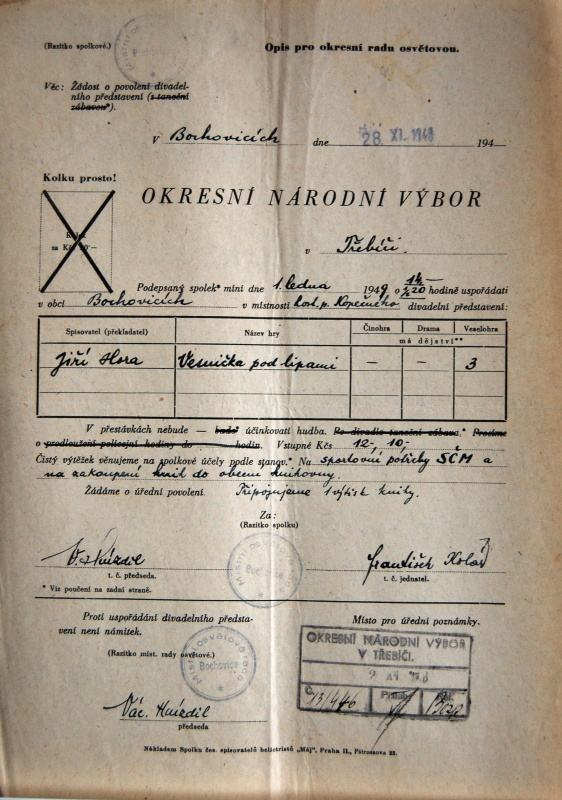 (Razítko spolkové.)
Opis pro okresní radu osvětovou.
Věc: Žádost o povolení divadel-
ního představení (s taneční
zábavou*).
V Bochovicích dne 28 XI. 1948 194
Kolku prosto!
OKRESNÍ NÁRODNÍ VÝBOR
v Třebíči.
Podepsaný spolek* míní dne 1. ledna 1949 o 14— hodině uspořádati
½20
v obci Bochovicích v místnosti host. p. Kopečného divadelní představení:
Spisovatel (překladatel) Název hry Činohra Drama Veselohra
má dějství**
Jiří Hora Vesnička pod lipami — — 3
V přestávkách nebude — bude* účinkovati hudba. Po divadle taneční zábava.* Prosíme
o prodloužení policejní hodiny do hodin. Vstupné Kčs 12-, 10-
Čistý výtěžek věnujeme na spolkové účely podle stanov.* Na sportovní potřeby SČM a
na zakoupení knih do obecní knihovny.
Žádáme o úřední povolení. Připojujeme 1 výtisk knihy.
Za:
(Razítko spolku)
V. Hnízdil František Kolář
t. č. předseda. t. č. jednatel.
* Viz poučení na zadní straně.
Proti uspořádání divadelního představení
není námitek.
Místo pro úřední poznámky.
(Razítko míst. rady osvětové.)
Místní osvětová rada
Bochovice
OKRESNÍ NÁRODNÍ VÝBOR
V TŘEBÍČI.
Vác. Hnízdil
předseda
Nákladem Spolku čes. spisovatelů beletristů „Máj", Praha II., Pštrossova 23.